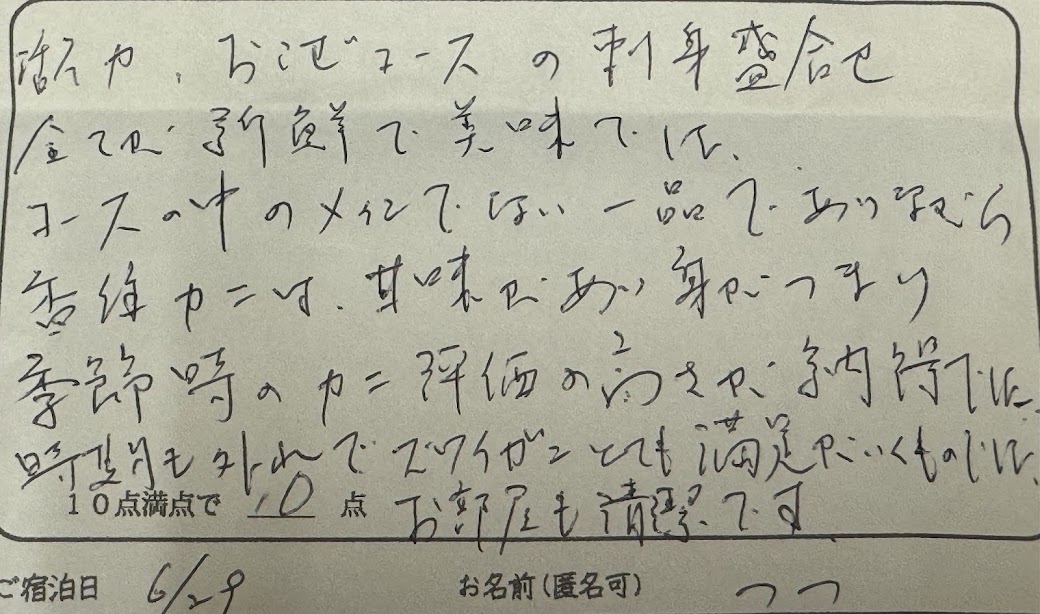 活イカ、おこぜコースの刺身盛合せ
全てが新鮮で美味でした、
コースの中のメインでない一品でありながら
香住カニは、甘味があり身がつまり
季節時のカニ評価の高さが納得でした、
時期も外れでズワイガニとても満足がいくものでした、
10点満点で 10 点 お部屋も清潔です
ご宿泊日 6/29 お名前(匿名可)